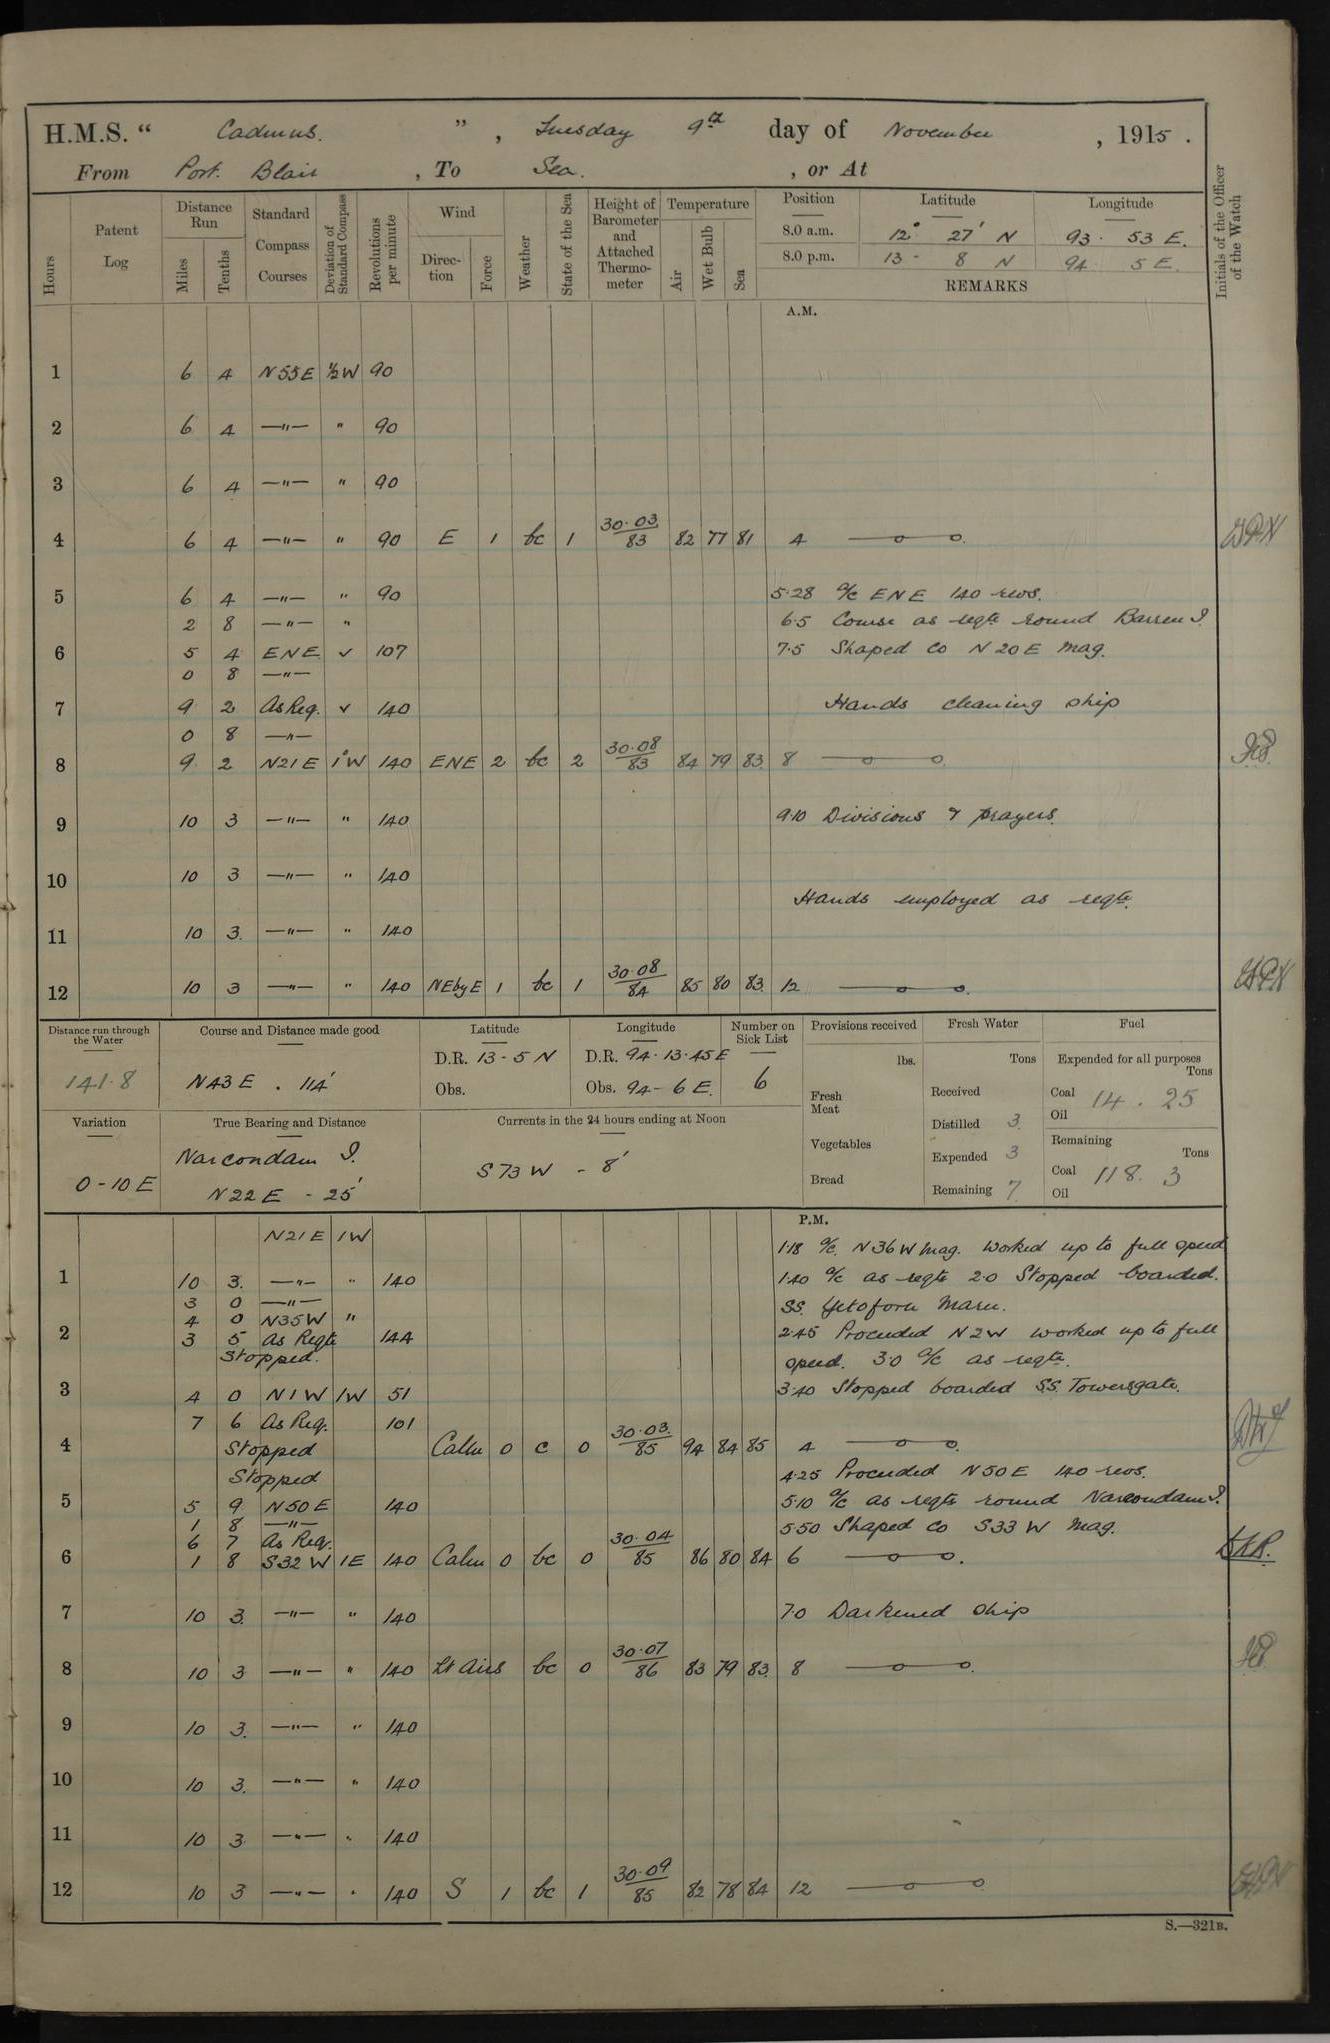 H.M.S. " Cadmus. ", Tuesday 9th day of November, 1915.
From Port Blair, To Sea., or At
Hours
Patent Log
Distance Run
Miles
Tenths
Standard Compass Courses
Deviation of Standard Compass
Revolutions per minute
Wind
Direction
Force
Weather
State of the Sea
Height of Barometer and Attached Thermometer
Temperature
Air
Wet Bulb
Sea
Position Latitude Longitude
8.0 a.m. 12° 27' N 93 · 53 E.
8.0 p.m. 13 - 8 N 94 5 E.
REMARKS
Initials of the Officer of the Watch
A.M.
1 6 4 N55E ½W 90
2 6 4 —"— " 90
3 6 4 —"— " 90
4 6 4 —"— " 90 E 1 bc 1 30·03/83 82 77 81 4
5 6 4 —"— " 90 5·28 a/c ENE 140 revs.
2 8 —"— " 6·5 Course as reqte round Barren I.
6 5 4 ENE ✓ 107 7·5 Shaped Co N20E Mag.
0 8 —"—
7 9 2 As Req. ✓ 140 Hands cleaning ship
0 8 —"—
8 9 2 N21E 1°W 140 ENE 2 bc 2 30·08/83 84 79 83 8
9 10 3 —"— " 140 9·10 Divisions & prayers.
10 10 3 —"— " 140
Hands employed as reqte.
11 10 3. —"— " 140
12 10 3 —"— " 140 NEbyE 1 bc 1 30·08/84 85 80 83 12
Distance run through the Water
141·8
Course and Distance made good
N43E . 114'
Latitude
D.R. 13 - 5 N
Obs.
Longitude
D.R. 94·13·45E
Obs. 94 - 6 E.
Number on Sick List
6
Provisions received
lbs.
Fresh Meat
Vegetables
Bread
Fresh Water
Tons
Received
Distilled 3
Expended 3
Remaining 7
Fuel
Expended for all purposes
Tons
Coal 14 . 25
Oil
Remaining
Tons
Coal 118. 3
Oil
Variation
0 - 10 E
True Bearing and Distance
Narcondam I.
N22E - 25'
Currents in the 24 hours ending at Noon
S73W - 8'
P.M.
N21E 1W
1·18 a/c. N36W Mag. Worked up to full speed
1 10 3. —"— " 140 1·40 a/c as reqte 2·0 Stopped boarded.
3 0 —"— SS. Yetoforu Maru.
4 0 N35W "
2 3 5 As Reqte 144 2·45 Proceeded N2W worked up to full
Stopped. speed. 3·0 a/c as reqte.
3 4 0 N1W 1W 51 3·40 Stopped boarded S.S. Towersgate.
7 6 As Req. 101
4 Stopped Calm 0 c 0 30·03/85 94 84 85 4
Stopped 4·25 Proceeded N50E 140 revs.
5 5 9 N50E 140 5·10 a/c as reqte round Narcondam I.
1 8 —"— 5·50 Shaped Co S33W Mag.
6 7 As Req.
6 1 8 S32W 1E 140 Calm 0 bc 0 30·04/85 86 80 84 6
7 10 3. —"— " 140 7·0 Darkened ship
8 10 3 —"— " 140 Lt Airs bc 0 30·07/86 83 79 83 8
9 10 3. —"— " 140
10 10 3. —"— " 140
11 10 3 —"— " 140
12 10 3 —"— " 140 S 1 bc 1 30·09/85 82 78 84 12
S.—321B.